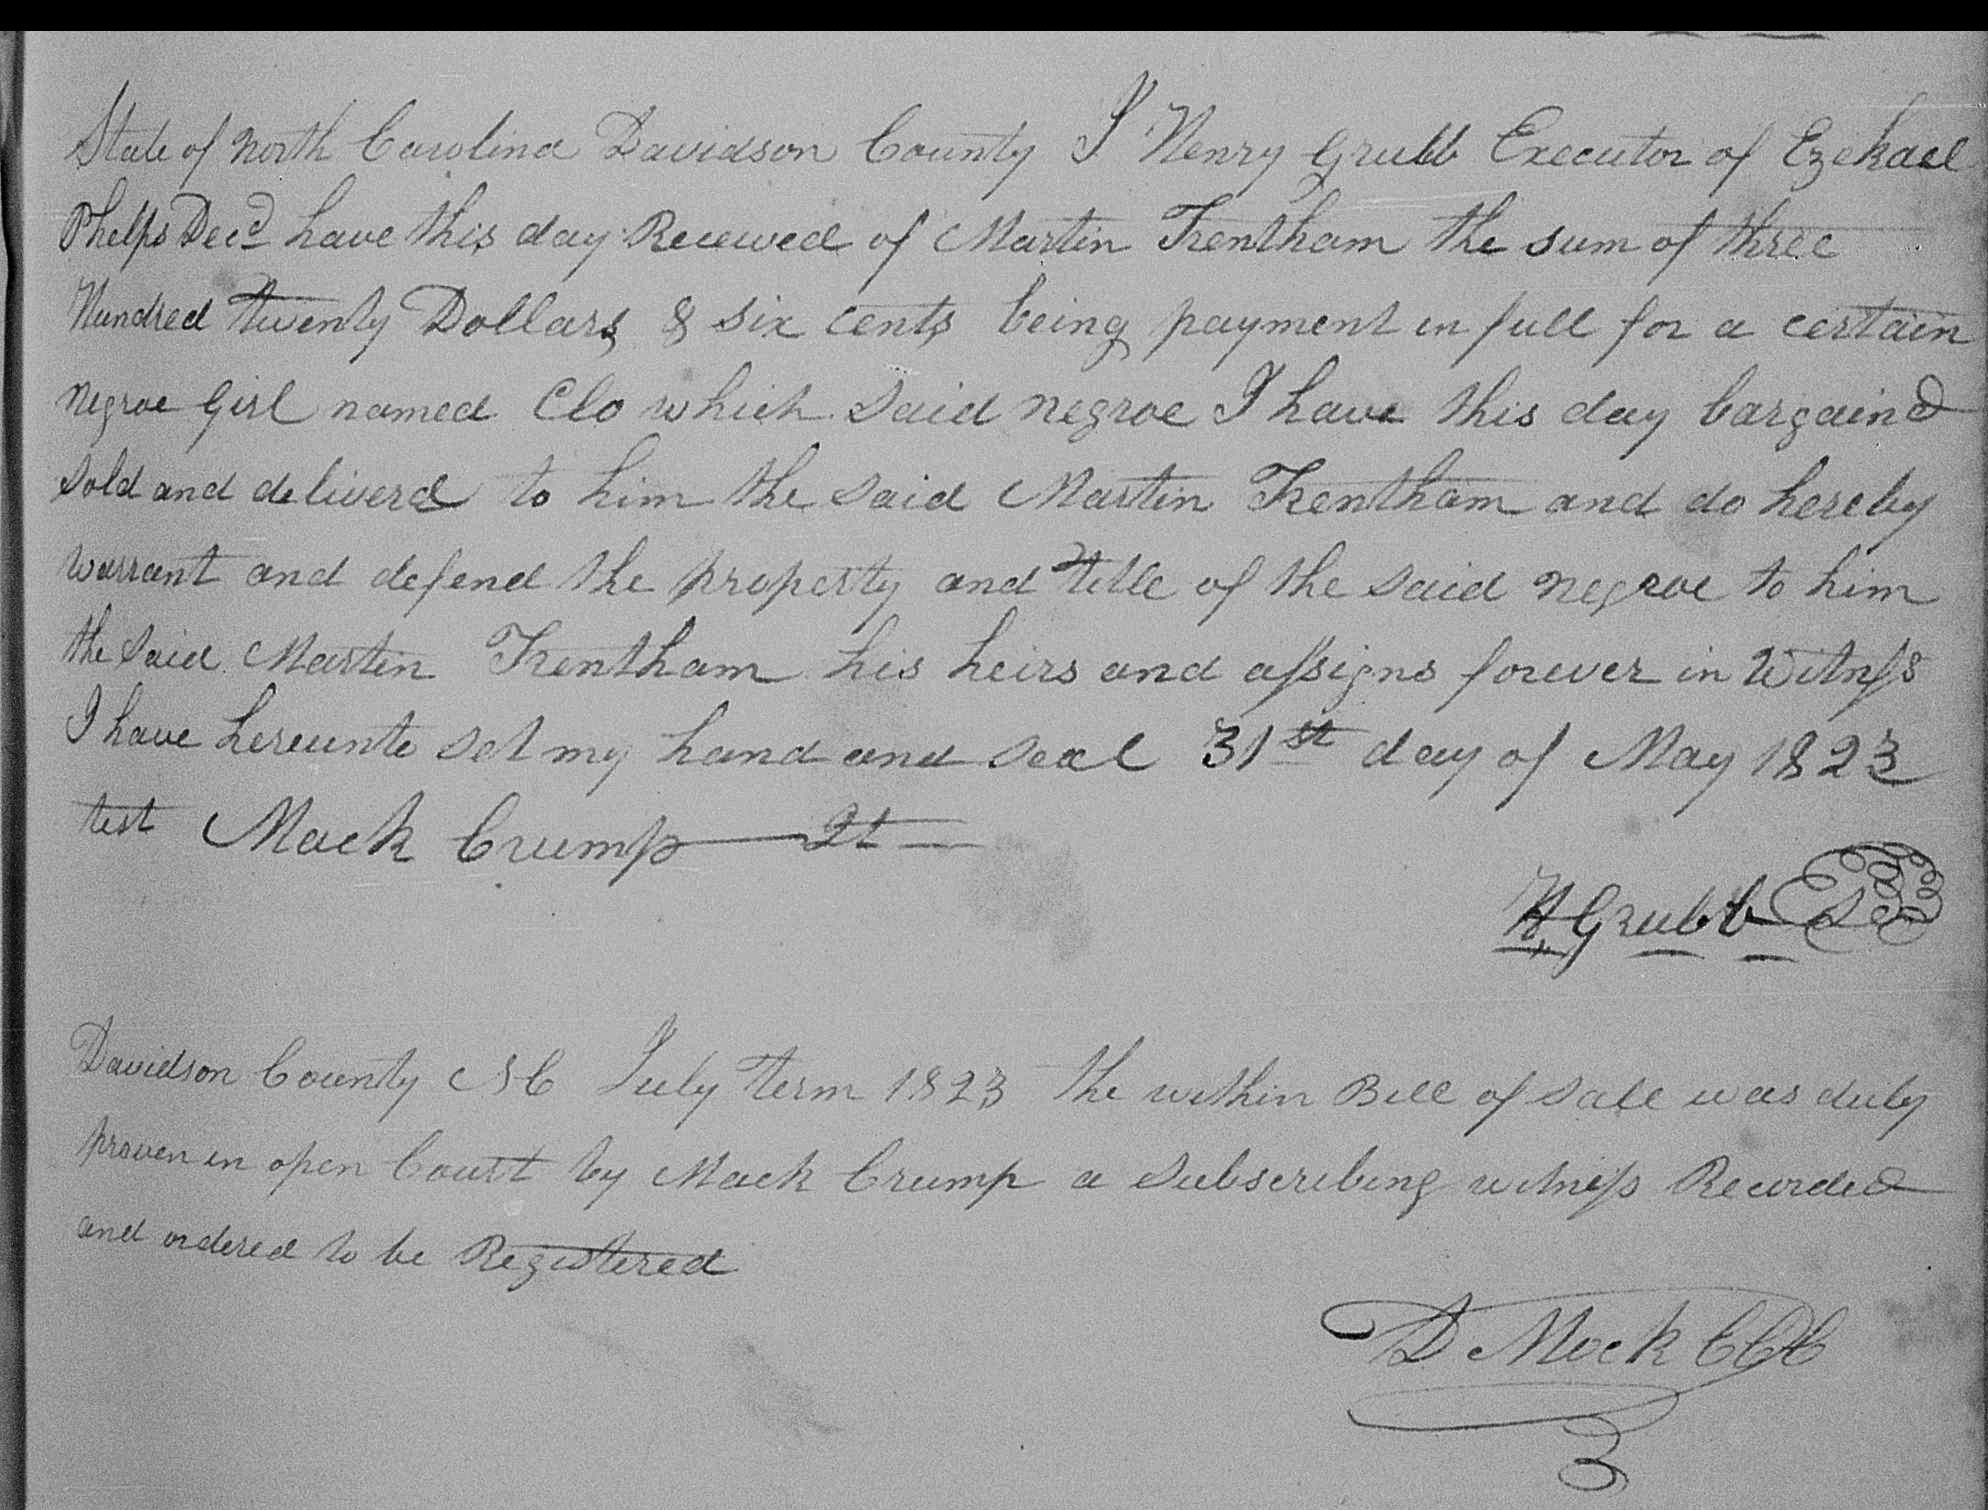 State of North Carolina Davidson County I Henry Grubb Executor of Ezekael
Phelps Decd have this day Received of Martin Trentham the sum of three
Hundred twenty Dollars & six cents being payment in full for a certain
Negroe Girl named Clo which said negroe I have this day bargaind
sold and deliverd to him the said Martin Trentham and do hereby
warrant and defend the property and title of the said negroe to him
the said Martin Trentham his heirs and assigns forever in Witness
I have hereunto set my hand and seal 31st day of May 1823
test Mack Crump
H Grubb Seal
Davidson County NC July term 1823 the within Bill of sale was duly
proven in open Court by Mack Crump a subscribing witness Recorded
and ordered to be Registered
D Mock CCC